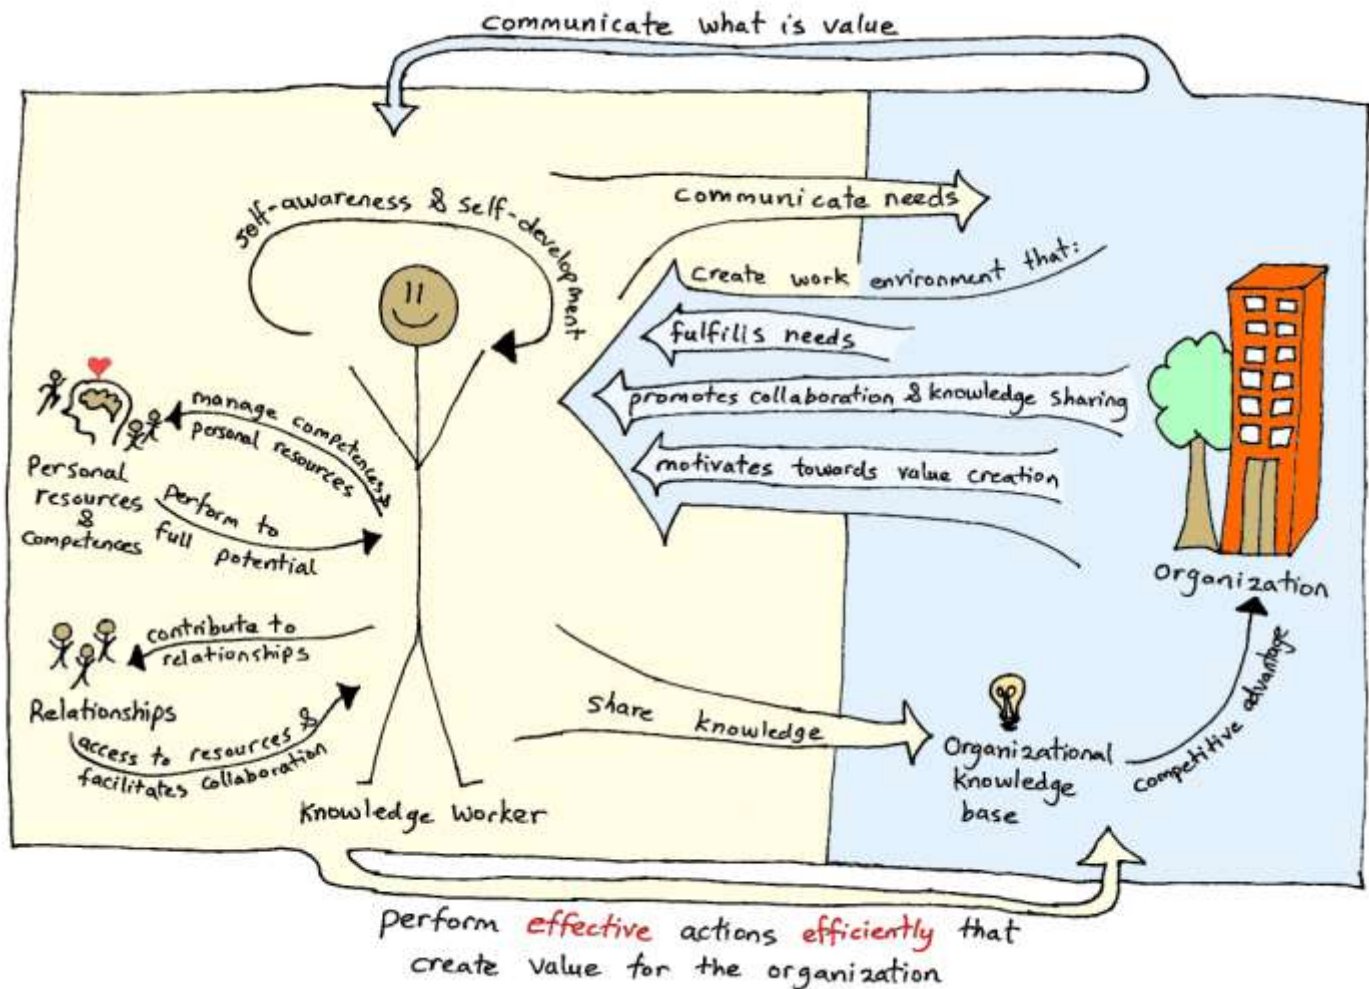 communicate what is value
self-awareness & self-development
communicate needs
create work environment that:
fulfills needs
promotes collaboration & knowledge sharing
motivates towards value creation
manage competences &
personal resources
Personal
resources
&
competences
perform to
full potential
contribute to
relationships
Relationships
access to resources &
facilitates collaboration
Knowledge Worker
share knowledge
Organizational
knowledge
base
competitive advantage
Organization
perform effective actions efficiently that
create value for the organization